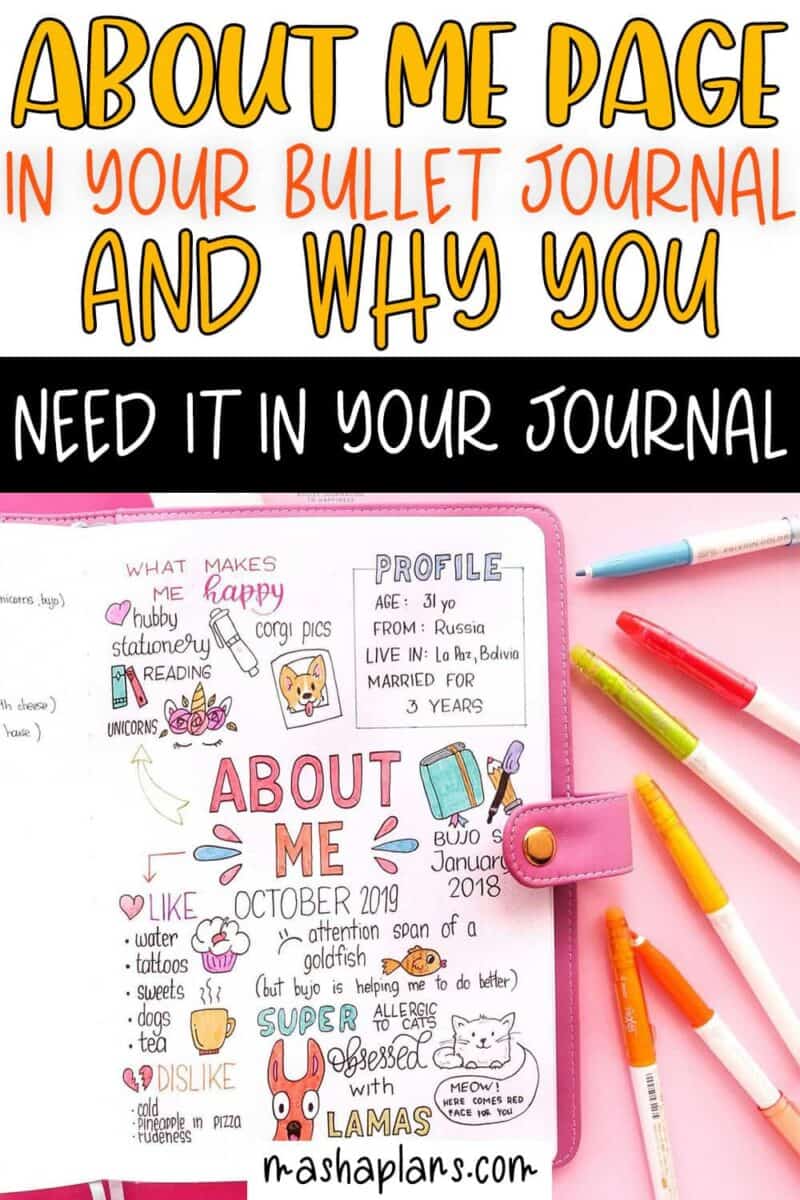 ABOUT ME PAGE
IN YOUR BULLET JOURNAL
AND WHY YOU
NEED IT IN YOUR JOURNAL
TO HAPPINESS
nicorns, bujo)
th cheese)
house)
WHAT MAKES
ME happy
hubby
stationery
corgi pics
READING
UNICORNS
PROFILE
AGE: 31 yo
FROM: Russia
LIVE IN: La Paz, Bolivia
MARRIED FOR
3 YEARS
ABOUT
ME
BUJO S
January
2018
OCTOBER 2019
LIKE
• water
• tattoos
• sweets
• dogs
• tea
DISLIKE
• cold
• pineapple in pizza
• rudeness
attention span of a
goldfish
(but bujo is helping me to do better)
SUPER ALLERGIC
TO CATS
Obsessed
with
LAMAS
MEOW!
HERE COMES RED
FACE FOR YOU
mashaplans.com